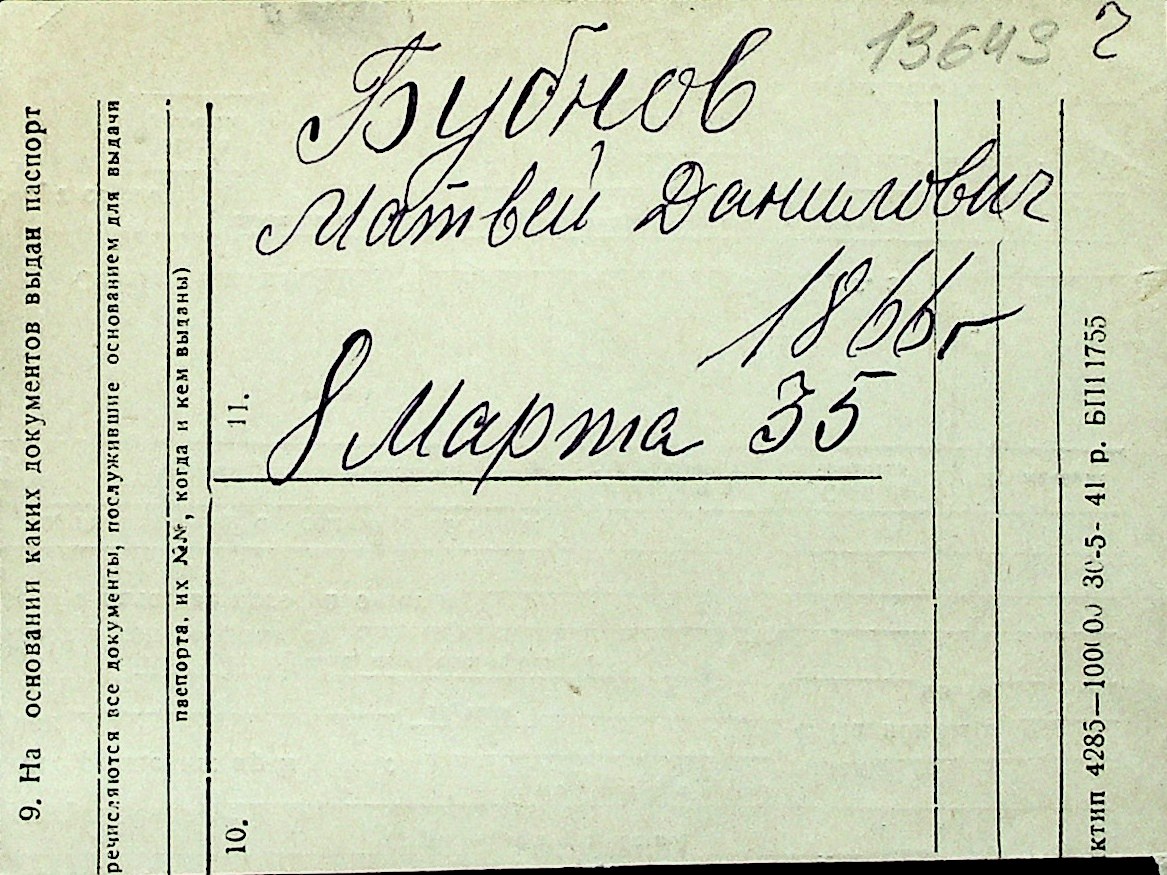 13643 2
Бубнов
Матвей Данилович
1866г
8 Марта 35
9. На основании каких документов выдан паспорт
речисляются все документы, послужившие основанием для выдачи
паспорта, их №№, когда и кем выданы)
10.
11.
ктип 4285—100000 30-5- 41 р. БП11755